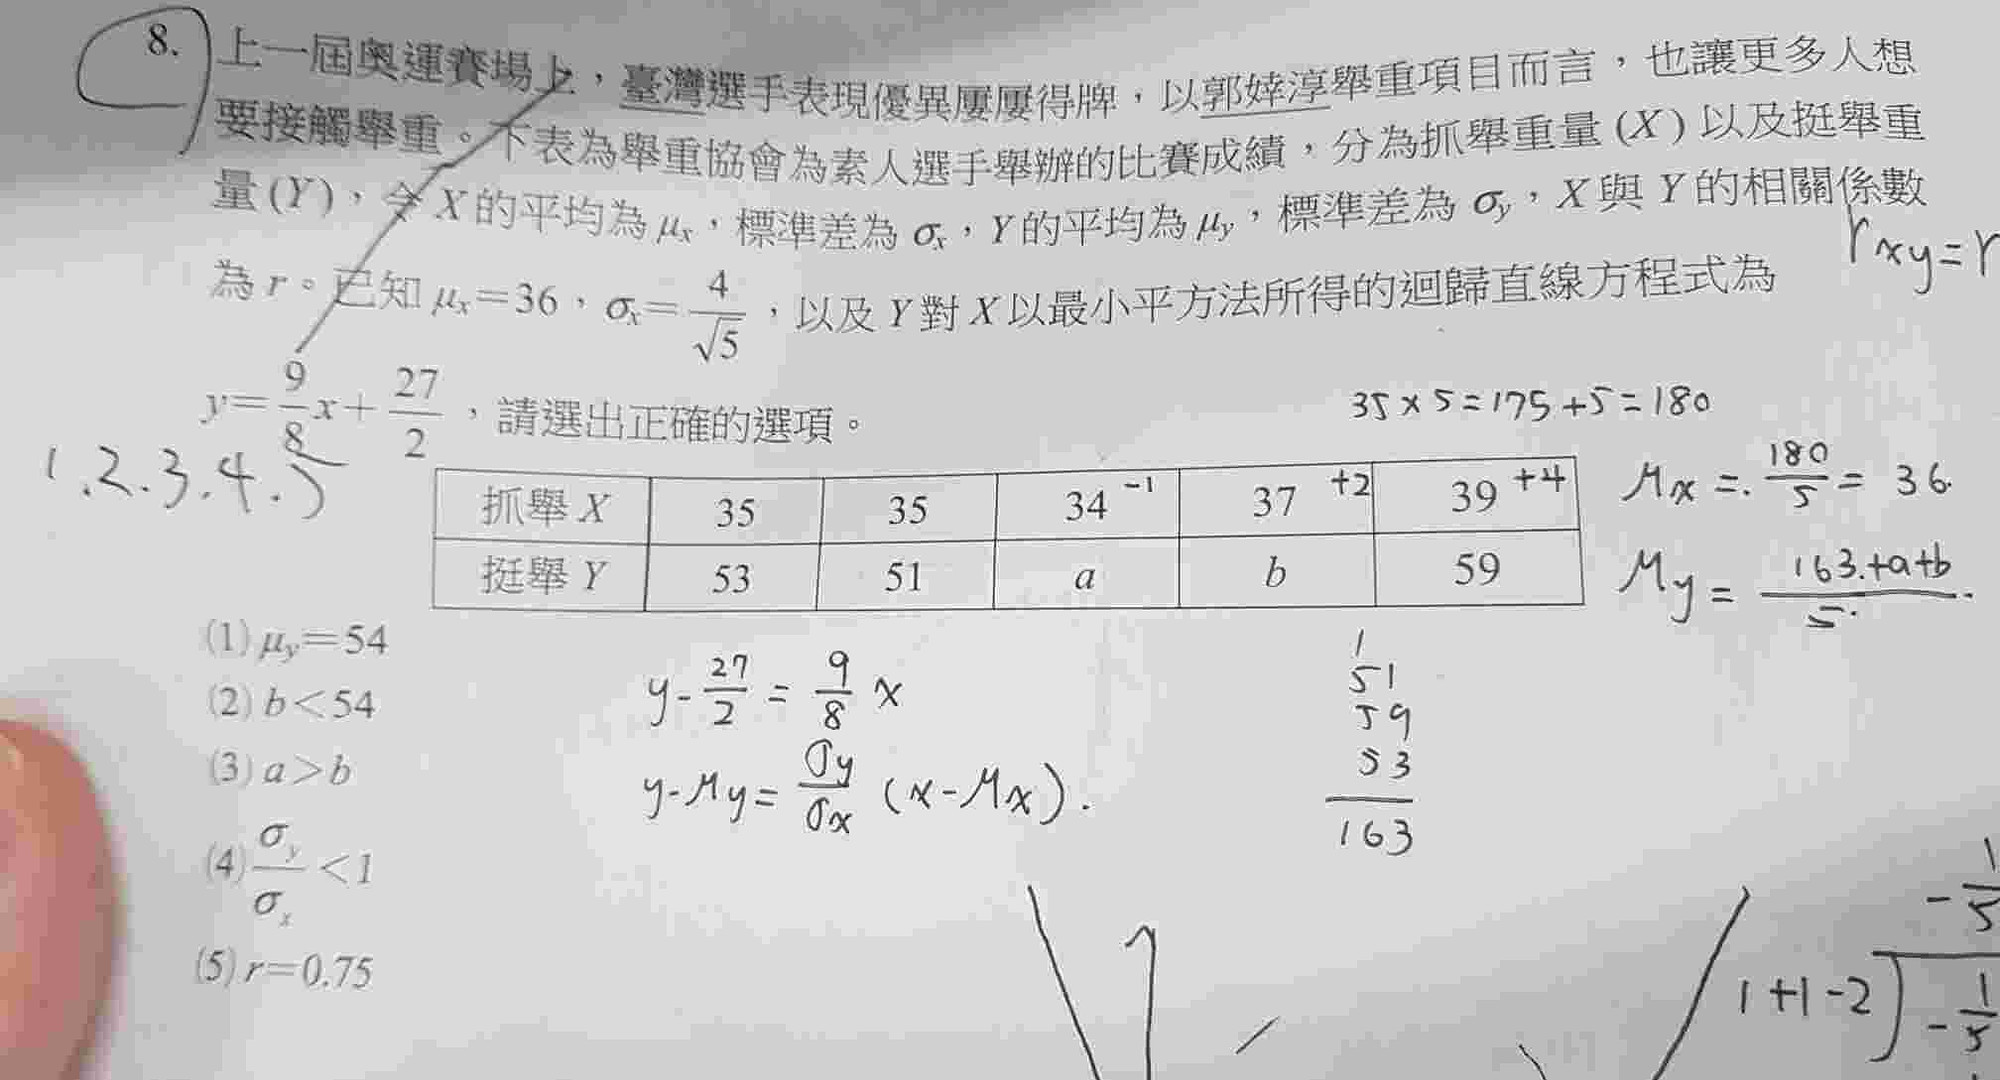 8. 上一屆奧運賽場上，臺灣選手表現優異屢屢得牌，以郭婞淳舉重項目而言，也讓更多人想
要接觸舉重。下表為舉重協會為素人選手舉辦的比賽成績，分為抓舉重量(X)以及挺舉重
量(Y)，令X的平均為μx，標準差為σx，Y的平均為μy，標準差為σy，X與Y的相關係數
rxy=r
為r。已知μx=36，σx=4/√5，以及Y對X以最小平方法所得的迴歸直線方程式為
y=9/8x+27/2，請選出正確的選項。
35×5=175+5=180
1.2.3.4.5
抓舉X 35 35 34 -1 37 +2 39 +4
μx=180/5=36
挺舉Y 53 51 a b 59
μy=163+a+b/5
(1) μy=54
(2) b<54
(3) a>b
(4) σy/σx<1
(5) r=0.75
y-27/2=9/8x
y-μy=σy/σx(x-μx).
1
51
59
53
163
-1/5
1+1-2
-1/5